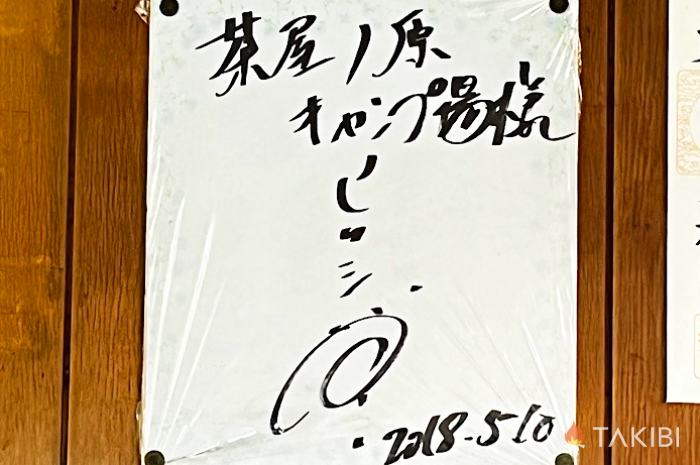 茶屋ノ原
キャンプ場様
ヒロシ
2018.5.10
TAKIBI